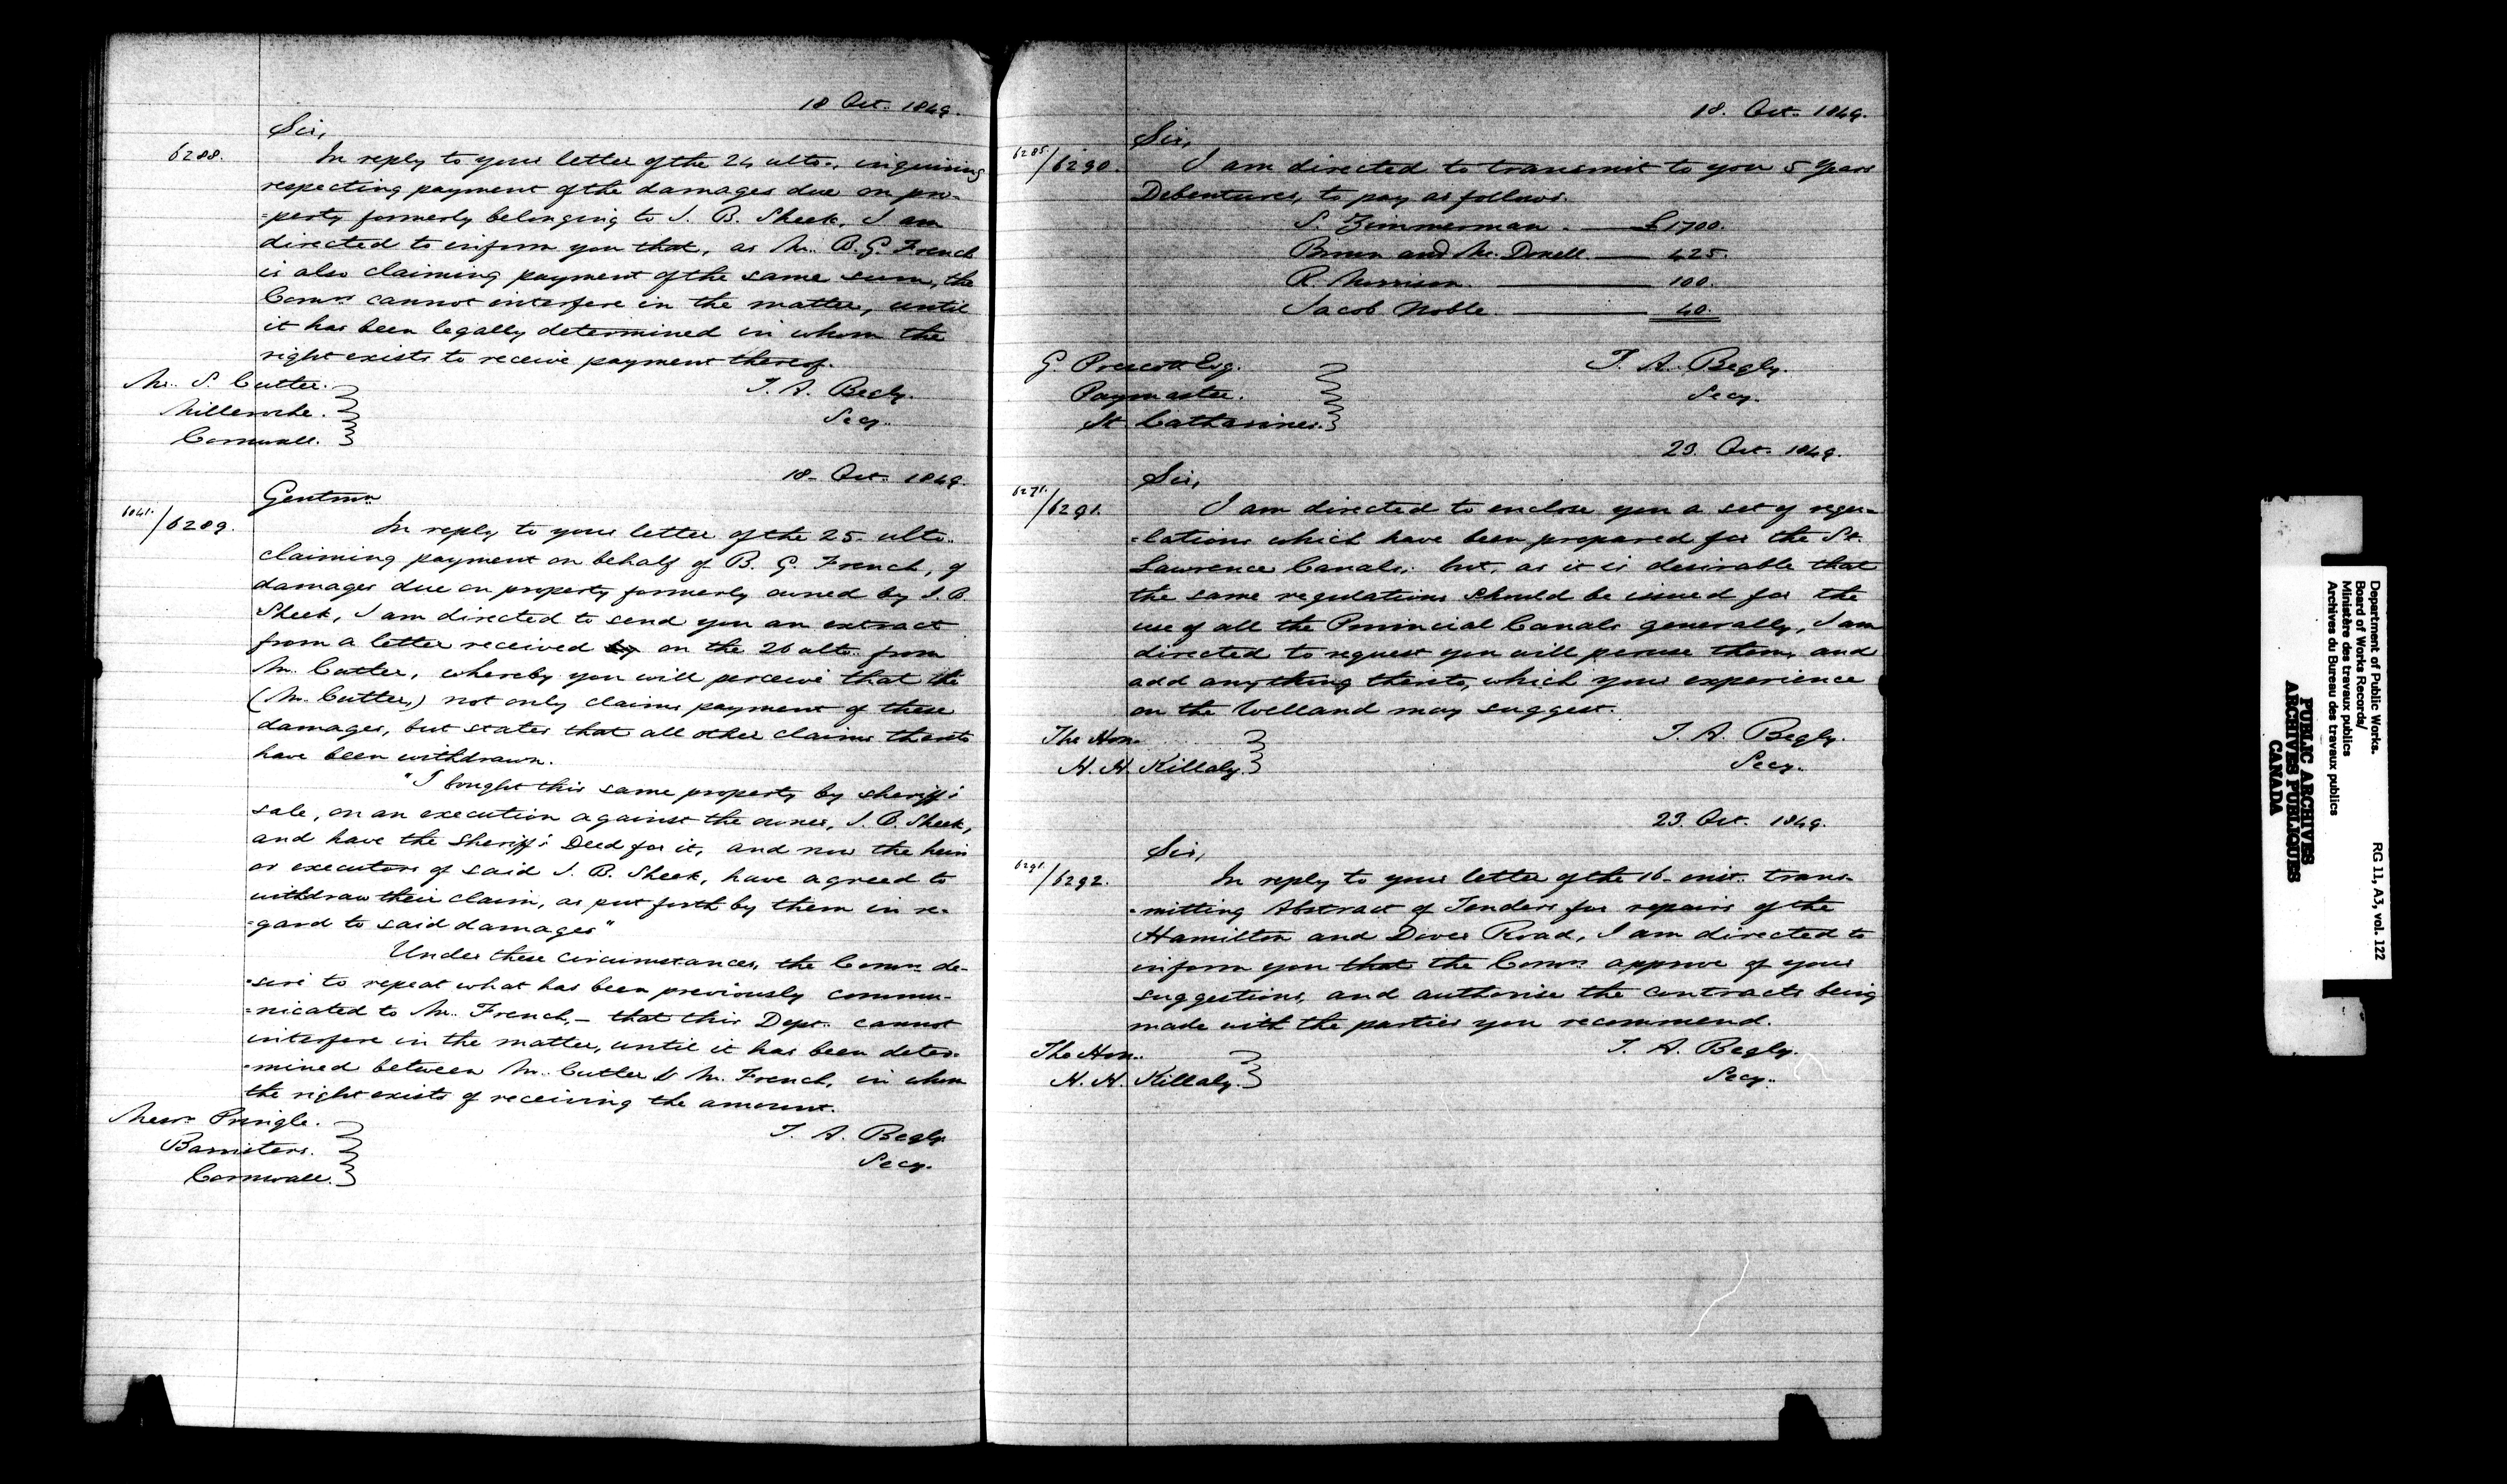 18 Oct. 1849.
Sir,
6288.
In reply to your letter of the 24 ulto., inquiring
respecting payment of the damages due on pro-
-perty formerly belonging to J. B. Sheek, I am
directed to inform you that, as Mr. B. G. French
is also claiming payment of the same sum, the
Comrs. cannot interfere in the matter, until
it has been legally determined in whom the
right exists to receive payment thereof.
Mr. S. Cutler.
Milleroche.
Cornwall.
T. A. Begly.
Secy.
18. Oct. 1849.
Gentmn
6041./6289.
In reply to your letter of the 25. ulto.
claiming payment on behalf of B. G. French, of
damages due on property formerly owned by J. B
Sheek, I am directed to send you an extract
from a letter received by on the 26 ulto. from
Mr. Cutler, whereby you will perceive that he
(Mr. Cutler,) not only claims payment of these
damages, but states that all other claims thereto
have been withdrawn.
"I bought this same property by sheriff's
sale, on an execution against the owner, J. B. Sheek,
and have the Sheriff's Deed for it, and now the heirs
or executors of said J. B. Sheek, have agreed to
withdraw their claim, as put forth by them in re-
-gard to said damages"
Under these circumstances, the Comrs. de-
-sire to repeat what has been previously commu-
-nicated to Mr. French, - that this Dept. cannot
interfere in the matter, until it has been deter-
-mined between Mr. Cutler & Mr. French, in whom
the right exists of receiving the amount.
Messrs. Pringle.
Barristers.
Cornwall.
T. A. Begly.
Secy.
18. Oct. 1849.
Sir,
6285./6290.
I am directed to transmit to you 5 Years
Debentures, to pay as follows.
S. Zimmerman. £1700.
Brown and McDonell 425.
R. Morrison. 100.
Jacob Noble. 40.
G. Prescott Esq.
Paymaster.
St. Catharines.
T. A. Begly.
Secy.
23. Oct. 1849.
Sir,
6271./6291.
I am directed to enclose you a set of regu-
-lations which have been prepared for the St.
Lawrence Canals, but, as it is desirable that
the same regulations should be issued for the
use of all the Provincial Canals generally, I am
directed to request you will peruse them, and
add anything thereto, which your experience
on the Welland may suggest.
The Hon.
H. H. Killaly.
T. A. Begly.
Secy.
23. Oct. 1849.
Sir,
6291./6292.
In reply to your letter of the 16. inst. trans-
-mitting Abstract of Tenders for repairs of the
Hamilton and Dover Road, I am directed to
inform you that the Comrs. approve of your
suggestions, and authorise the contracts being
made with the parties you recommend.
The Hon.
H. H. Killaly.
T. A. Begly.
Secy.
Department of Public Works.
Board of Works Records/
Ministère des travaux publics
Archives du Bureau des travaux publics
RG 11, A3, vol. 122
PUBLIC ARCHIVES
ARCHIVES PUBLIQUES
CANADA